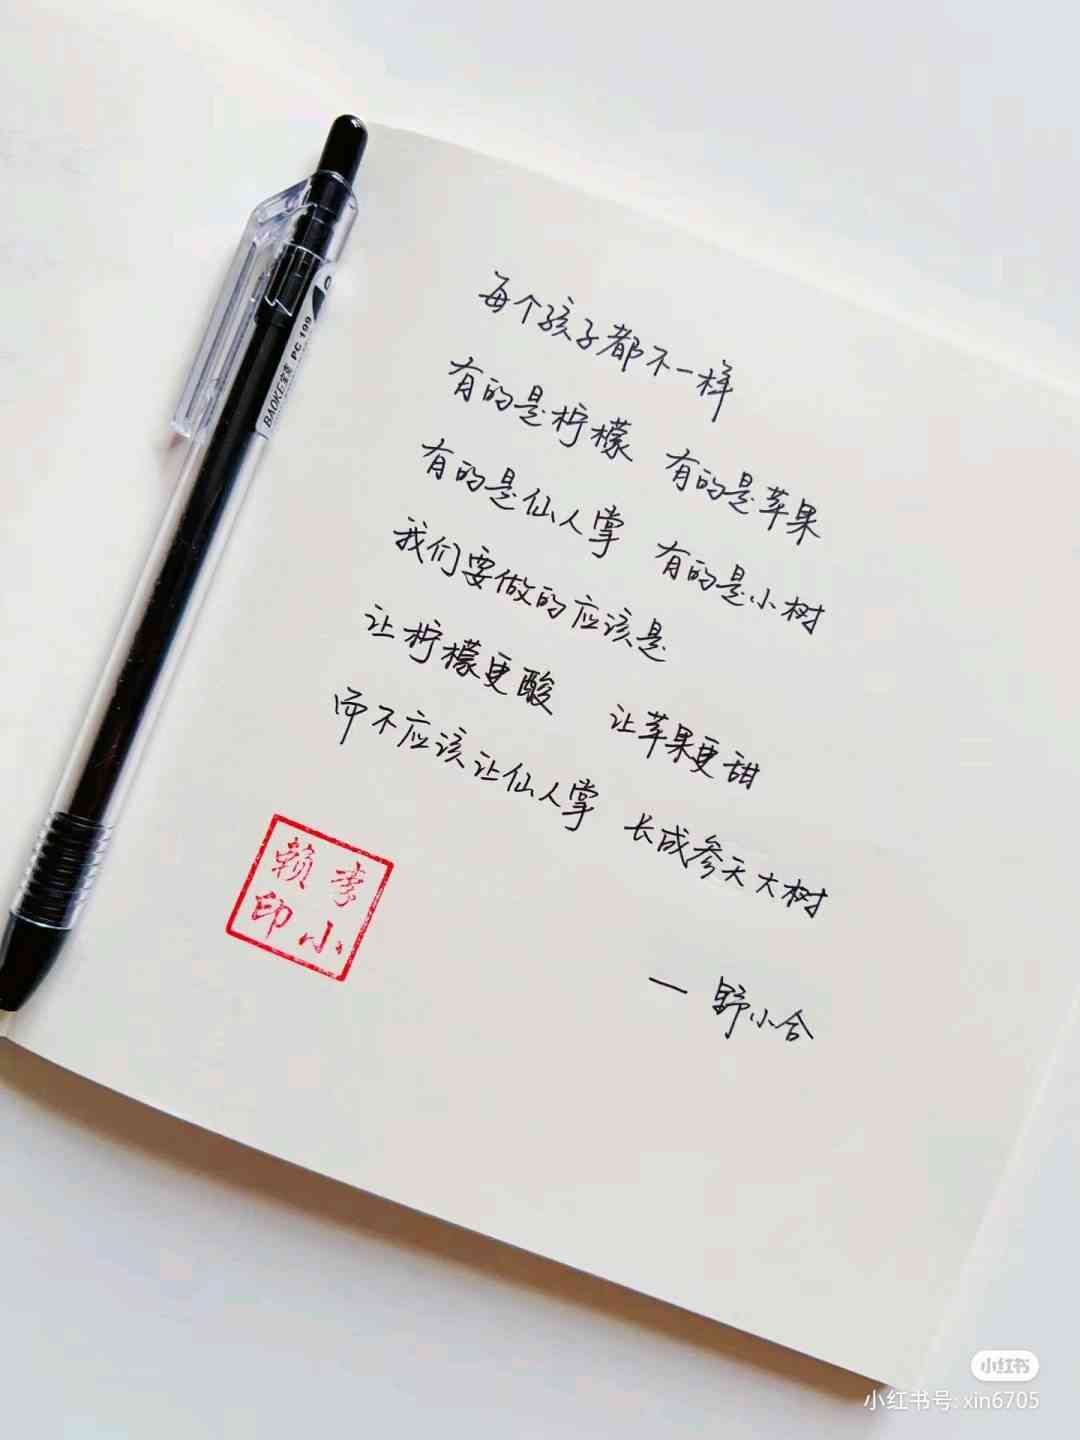 每个孩子都不一样
有的是柠檬 有的是苹果
有的是仙人掌 有的是小树
我们要做的应该是
让柠檬更酸 让苹果更甜
而不应该让仙人掌 长成参天大树
— 野小合
李小
赖印
BAOKE宝克 PC 199
小红书
小红书号: xin6705